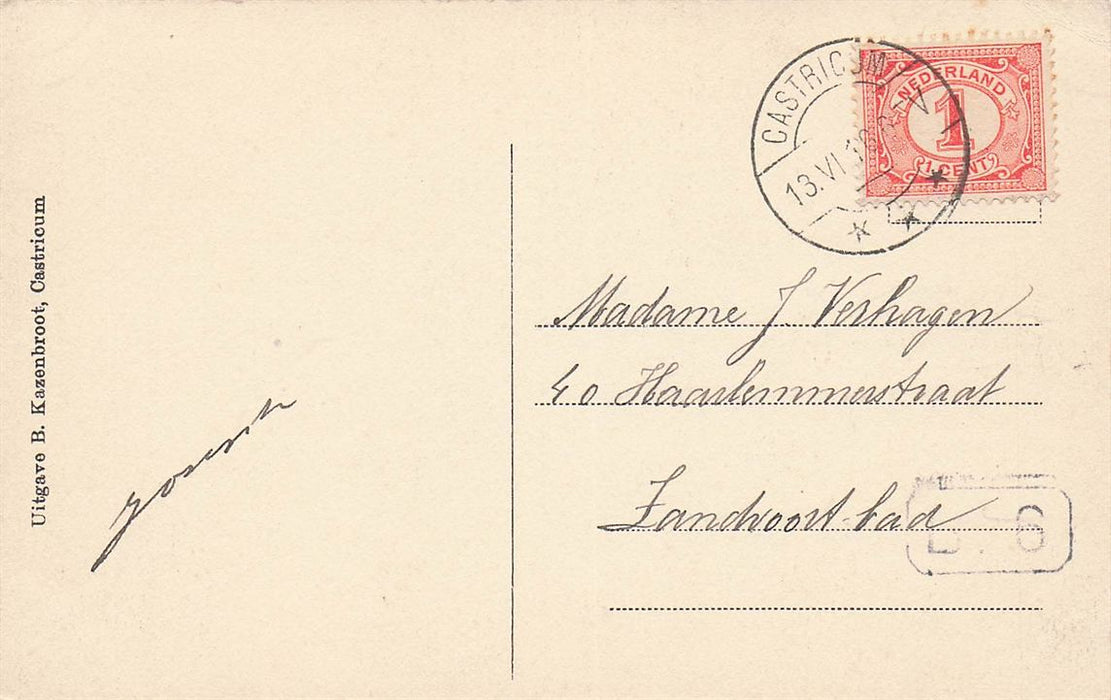 Uitgave B. Kazenbroot, Castricum
CASTRICUM
13.VI
NEDERLAND
1
1 CENT
Madame J Verhagen
40 Haarlemmerstraat
Zandvoort-bad
6